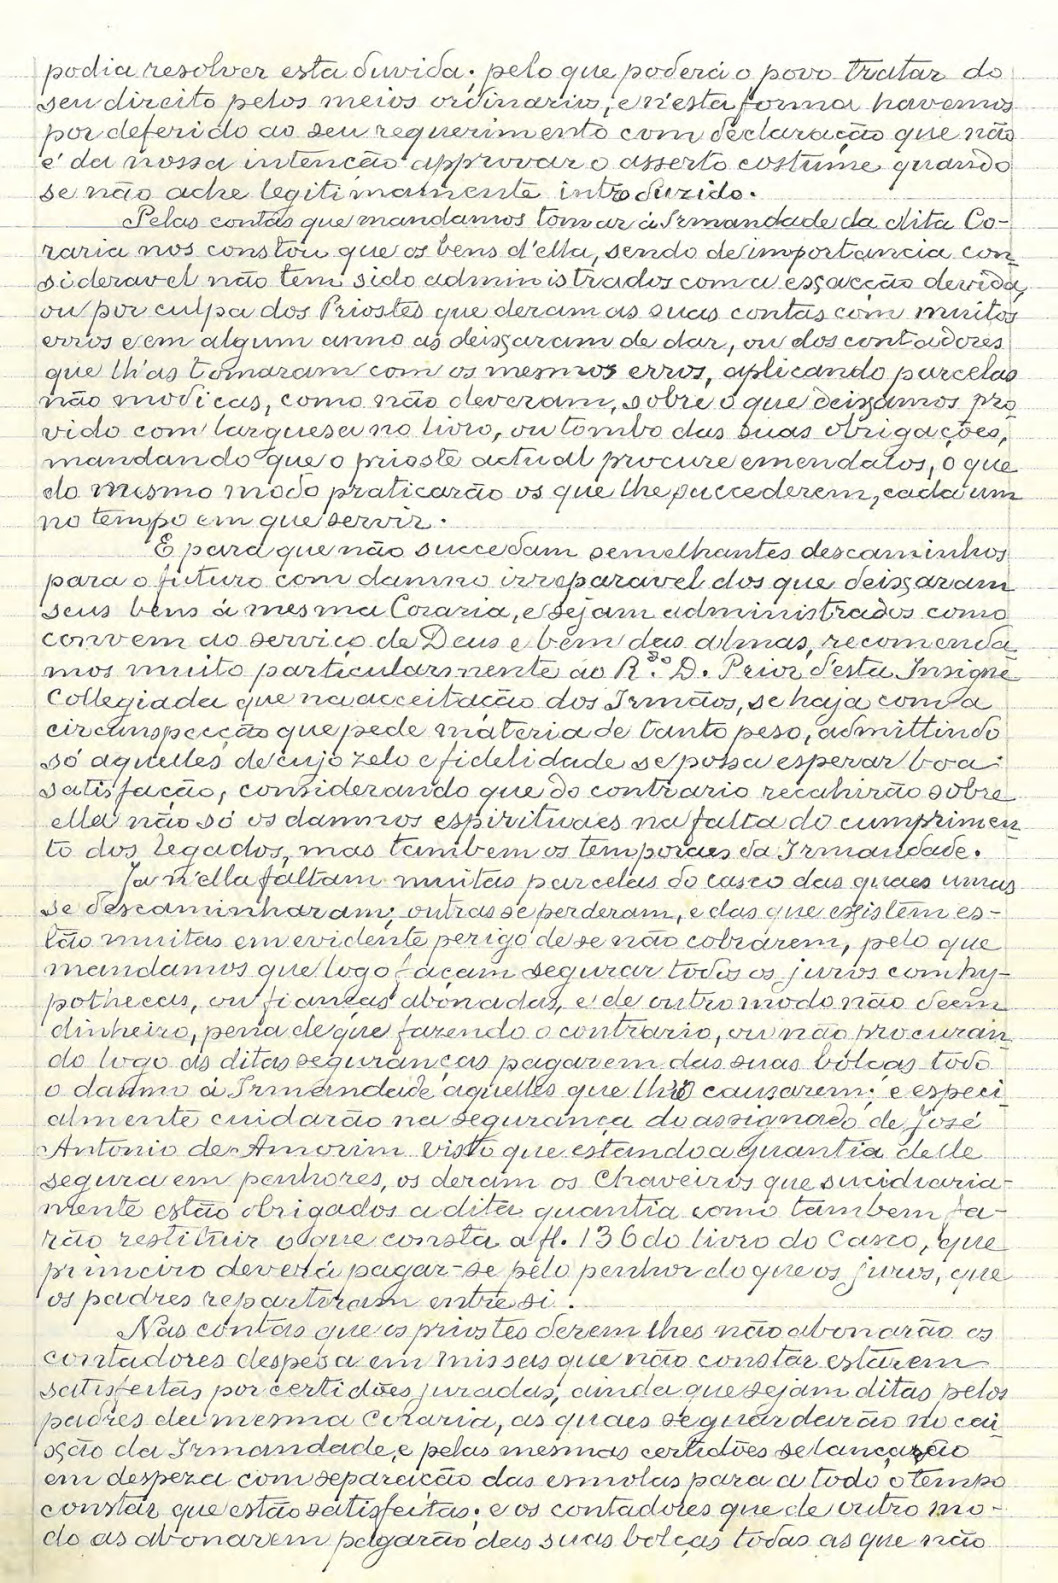 podia resolver esta duvida; pelo que poderá o povo tratar do
seu direito pelos meios ordinarios, e n'esta forma havemos
por deferido ao seu requerimento com declaração que não
é da nossa intenção approvar o asserto costume quando
se não ache legitimamente introduzido.
Pelas contas que mandamos tomar á Irmandade da dita Co-
raria nos constou que os bens d'ella, sendo de importancia con
sideravel não tem sido administrados com a exacção devida,
ou por culpa dos Priostes que deram as suas contas com muitos
erros e em algum anno as deixaram de dar, ou dos contadores
que lh'as tomaram com os mesmos erros, aplicando parcelas
não modicas, como não deveram, sobre o que deixamos pro
vido com larguesa no livro, ou tombo das suas obrigações,
mandando que o prioste actual procure emendalos, o que
do mesmo modo praticarão os que lhe succederem, cada um
no tempo em que servir.
E para que não succedam semelhantes descaminhos
para o futuro com damno irreparavel dos que deixaram
seus bens á mesma Coraria, e sejam administrados como
convem ao serviço de Deus e bem das almas, recomenda
mos muito particularmente ao R.do D. Prior d'esta Insigne
Collegiada que na acceitação dos Irmãos, se haja com a
circunspecção que pede materia de tanto peso, admittindo
só aquelles de cujo zelo e fidelidade se possa esperar boa
satisfação, considerando que do contrario recahirão sobre
ella não só os damnos espirituaes na falta do cumprimen
to dos legados, mas tambem os temporaes da Irmandade.
Ja n'ella faltam muitas parcelas do casco das quaes umas
se descaminharam; outras se perderam, e das que existem es-
tão muitas em evidente perigo de se não cobrarem, pelo que
mandamos que logo façam segurar todos os juros com hy-
pothecas, ou fianças abonadas, e de outro modo não deem
dinheiro, pena de que fazendo o contrario, ou não procuran
do logo as ditas seguranças pagarem das suas bolças todo
o damno á Irmandade aquelles que lho causarem; e especi
almente cuidarão na segurança do assignado de José
Antonio de Amorim visto que estando a quantia delle
segura em penhores, os deram os Chaveiros que sucidiaria-
mente estão obrigados a dita quantia como tambem fa-
rão restituir o que consta a fl. 136 do livro do Casco, que
primeiro deverá pagar-se pelo penhor do que os juros, que
os padres repartiram entre si.
Nas contas que os priostes derem lhes não abonarão os
contadores despesa em missas que não constar estarem
satisfeitas por certidões juradas, ainda que sejam ditas pelos
padres da mesma Coraria, as quaes se guardarão no cai
xão da Irmandade, e pelas mesmas certidões se lançarão
em despeza com separação das esmolas para a todo o tempo
constar que estão satisfeitas; e os contadores que de outro mo-
do as abonarem pagarão das suas bolças todas as que não